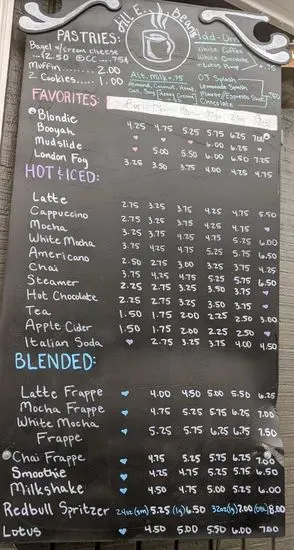 Hill E. Beans
PASTRIES:
Bagel w/cream cheese
...2.50 @CC...75¢
Muffin........2.00
2 Cookies.....1.00
Add-Ons
White Coffee
White Chocolate
Lotus Pump
Alt. milk +.75
Almond, Coconut, Hemp,
Oat, Soy
OJ Splash
Lemonade Splash
Flavor/Espresso Shot
Chocolate
.50
FAVORITES:
Blondie 4.25 4.75 5.25 5.75 6.25 7.00
Booyah
Mudslide 6.00 6.25
London Fog 3.25 3.50 3.75 4.00 4.25 4.75
HOT & ICED:
Latte 2.75 3.25 3.75 4.25 4.75 5.50
Cappuccino 2.75 3.25 3.75 4.25 4.75
Mocha 3.25 3.75 4.25 4.75 5.25 6.00
White Mocha 3.75 4.25 4.75 5.25 5.75 6.50
Americano 2.50 2.75 3.00 3.25 3.75 4.25
Chai 3.75 4.25 4.75 5.25 5.75 6.50
Steamer 2.25 2.75 3.25 3.50 3.75
Hot Chocolate 2.25 2.75 3.25 3.50 3.75
Tea 1.50 1.75 2.00 2.25 2.50 3.00
Apple Cider 1.50 1.75 2.00 2.25 2.50
Italian Soda 2.75 3.25 3.75 4.00 4.50
BLENDED:
Latte Frappe 4.00 4.50 5.00 5.50 6.25
Mocha Frappe 4.75 5.25 5.75 6.25 7.00
White Mocha
Frappe 5.25 5.75 6.25 6.75 7.50
Chai Frappe 4.75 5.25 5.75 6.25 7.00
Smoothie 4.25 4.75 5.25 5.75 6.50
Milkshake 4.50 4.75 5.00 5.25 6.00
Redbull Spritzer 24oz(sm) 5.75 (lg) 6.50 32oz(lg) 7.00 8.00
Lotus 4.50 5.00 5.50 6.00 7.00